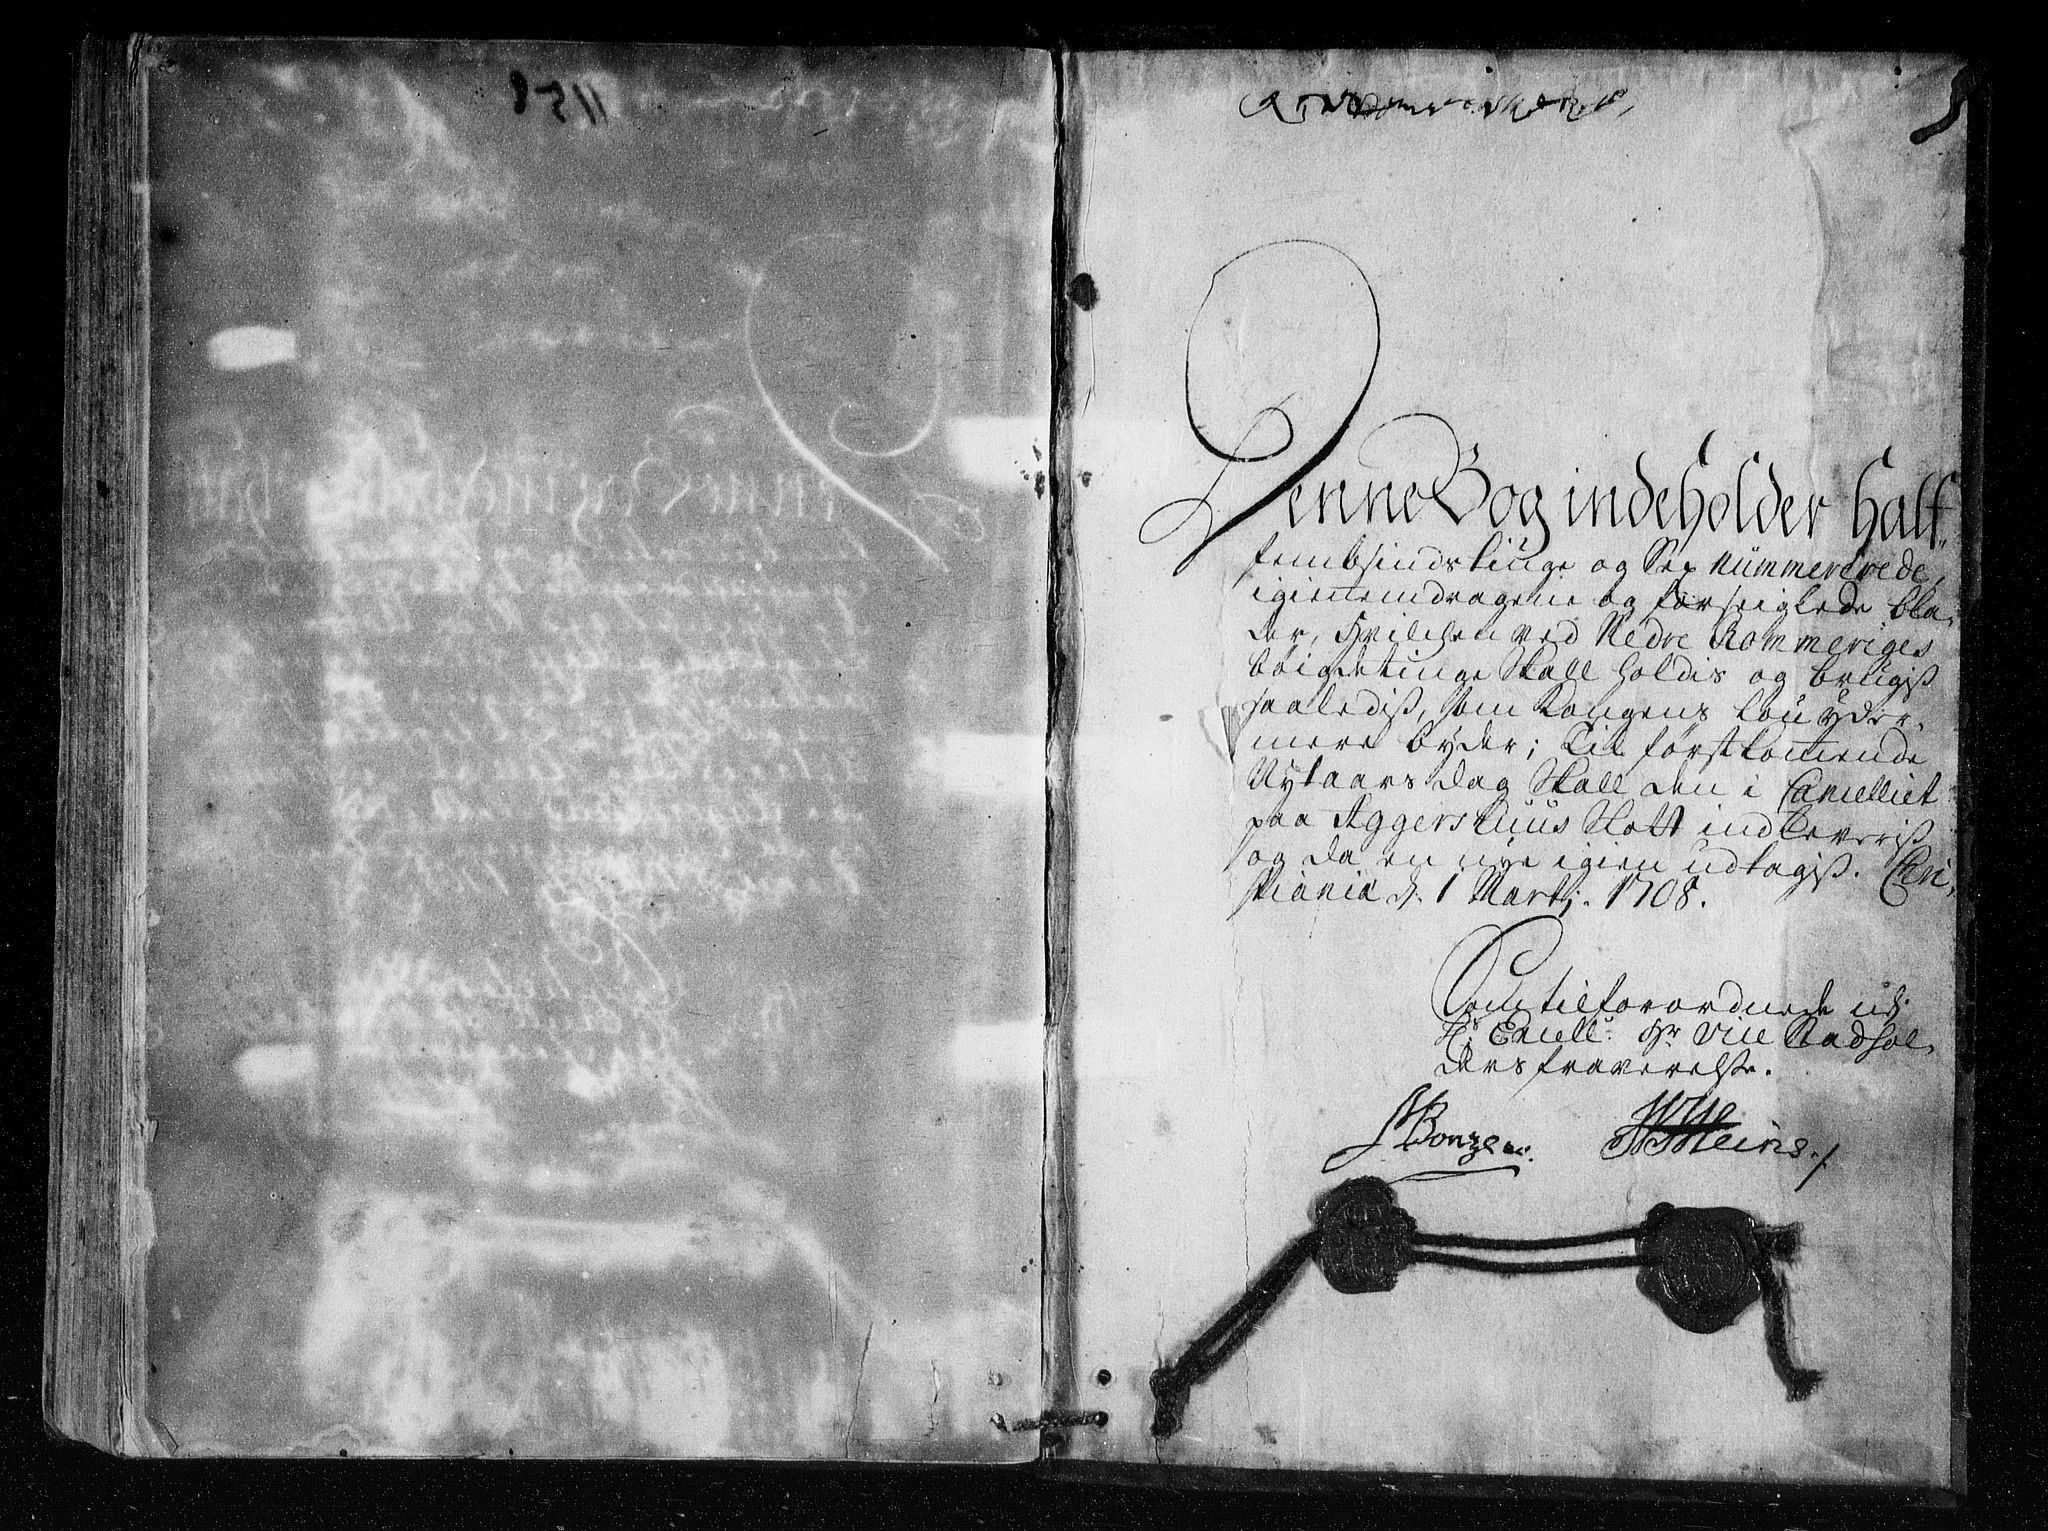 Denne Bog indeholder Half
fembsindstiuge og Sex Nummererede,
igiennemdragene og forseiglede bla,
der, Hvilchen ved Nedre Rommeriges
böigdetinge Skall holdis og brugis̃
saaledis̃, som Kongens lou yder,
mere byder; Til förstkomende
Nytaars dag Skall den i Cancelliet
paa Aggershuus Slott indleveris̃
og da en nye igien udtagis̃. Chri,
stiania d. 1 Martj. 1708.
Som tilforordnede udj
Hs Excell: Hr Vice Stadhol,
ders fraverelse.